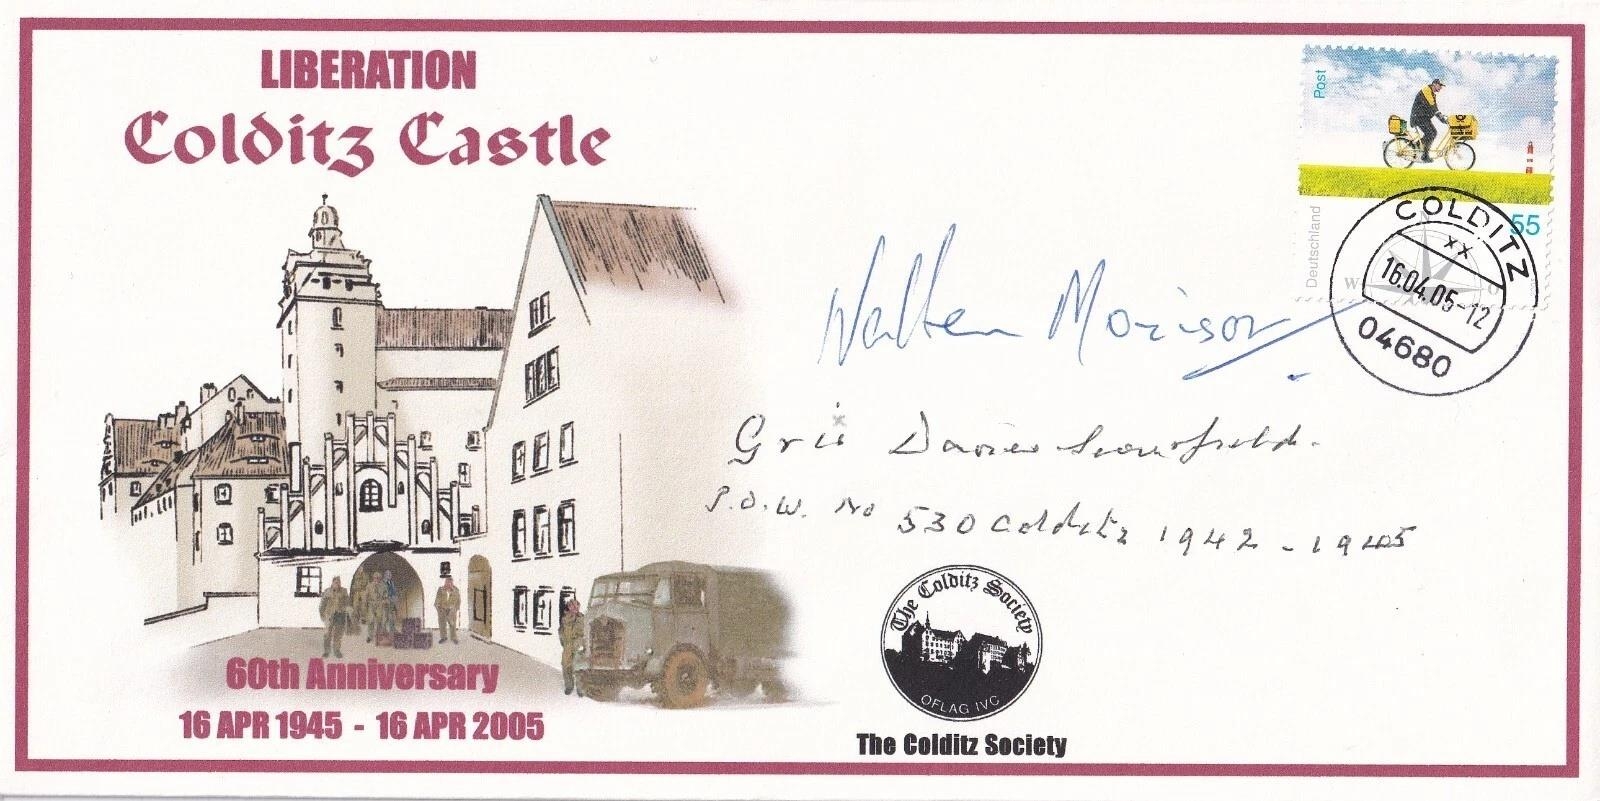 LIBERATION
Colditz Castle
Post
Deutschland
55
W O
COLDITZ
XX
16.04.05-12
04680
Walter Morison
Gris Davies Scourfield.
P.O.W. No 530 Colditz 1942 - 1945
60th Anniversary
16 APR 1945 - 16 APR 2005
The Colditz Society
OFLAG IVC
The Colditz Society